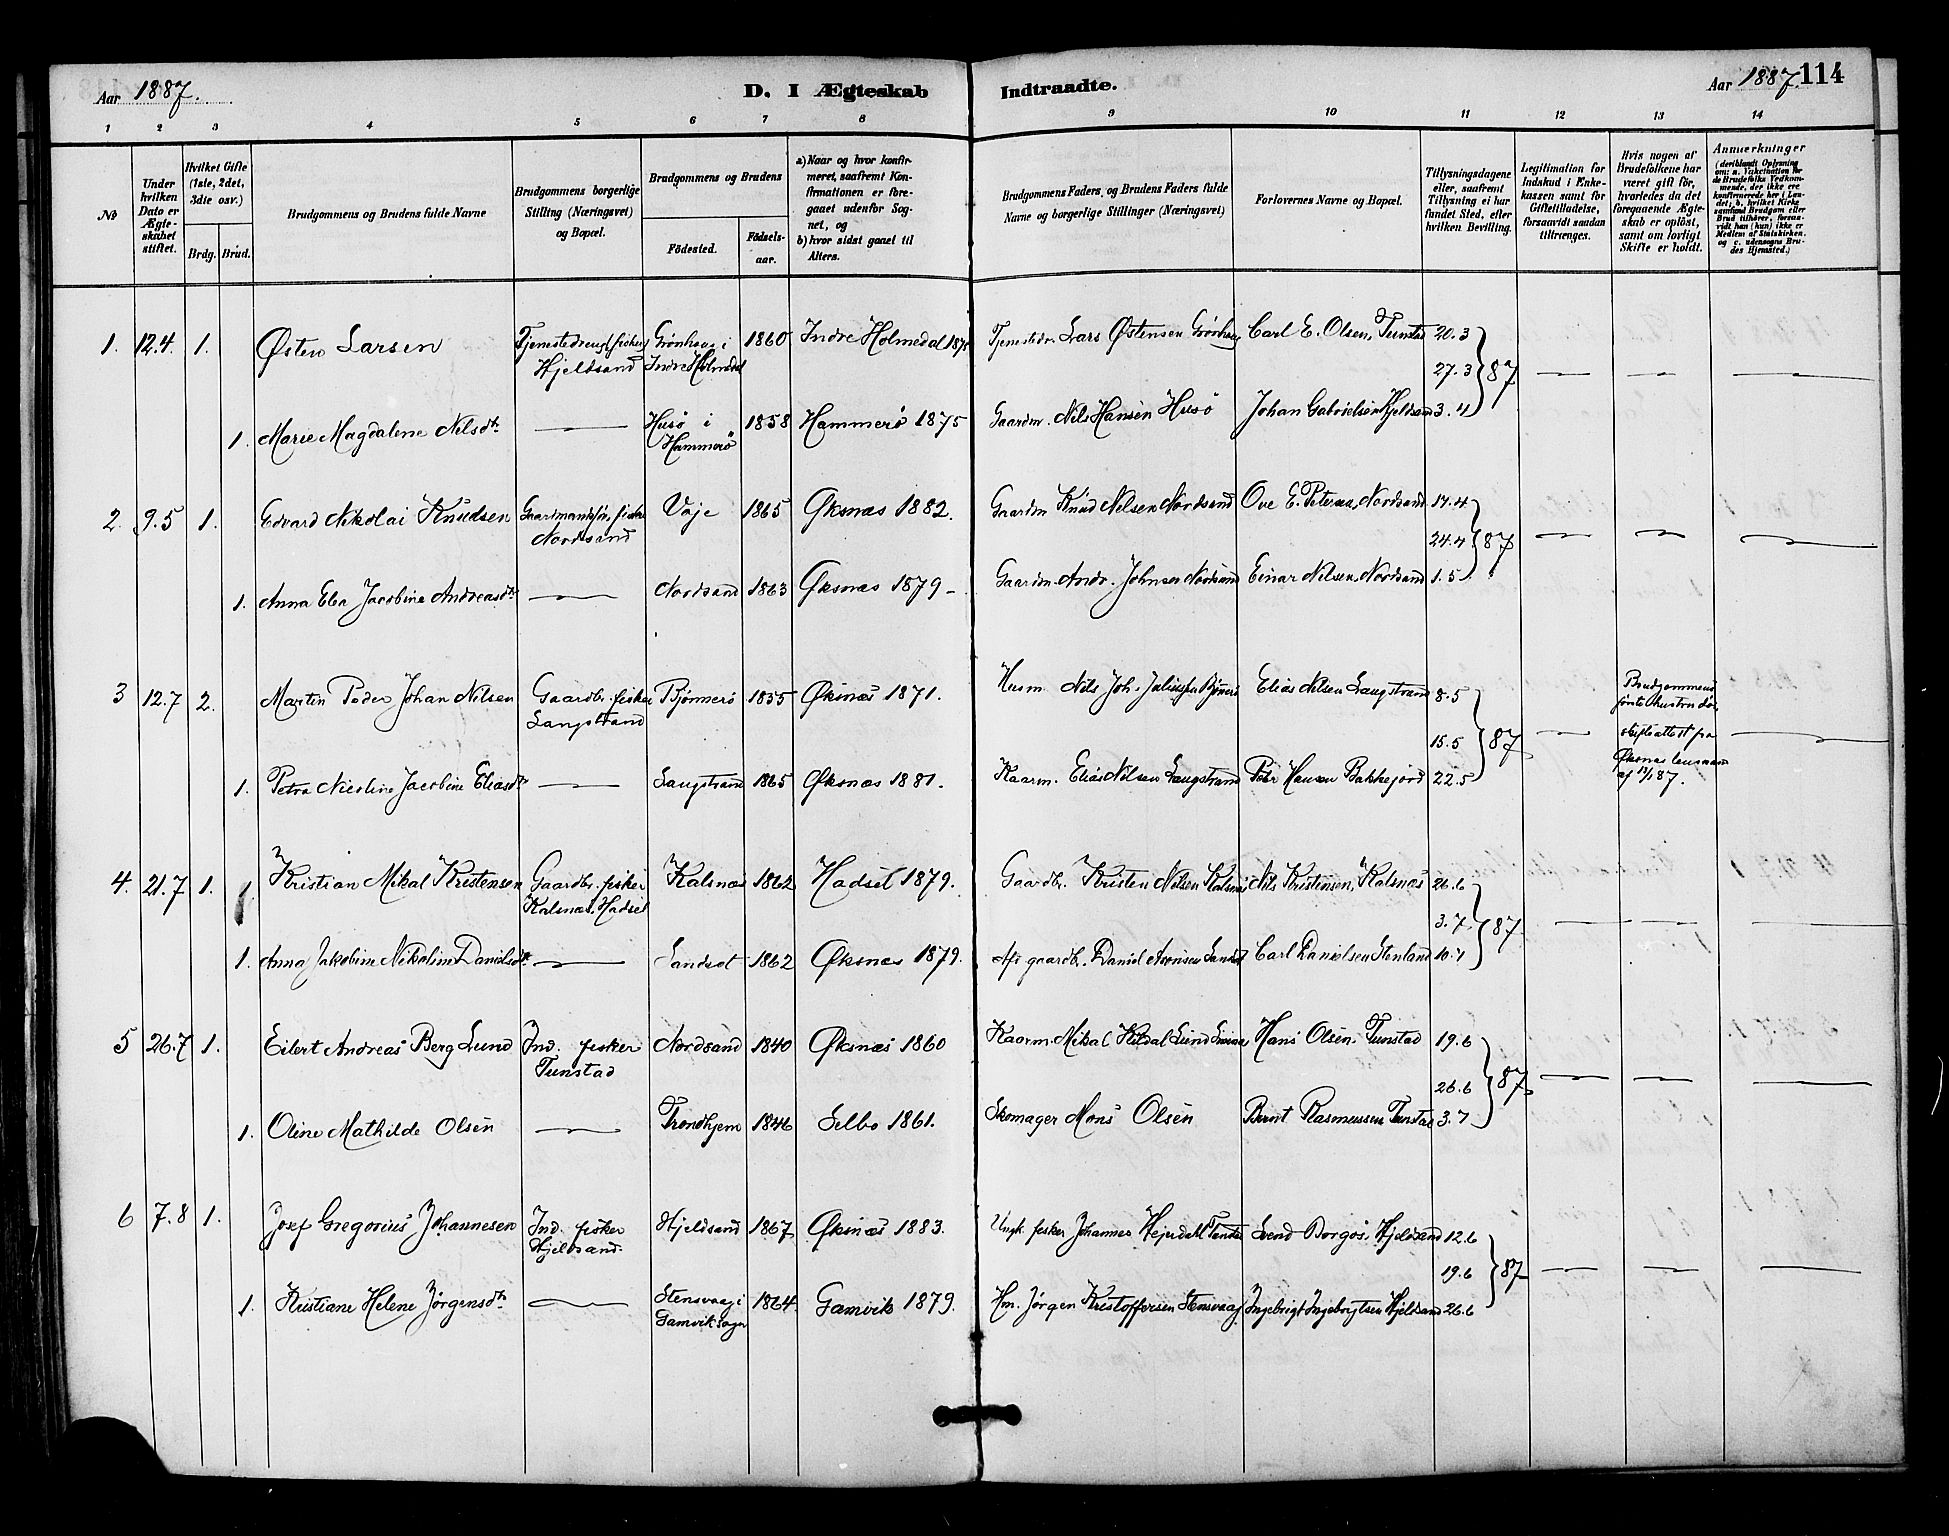 Aar 1887.
D. I Ægteskab Indtraadte.
Aar 1887. 114
1 2 3 4 5 6 7 8 9 10 11 12 13 14
No
Under hvilken Dato er Ægteskabet stiftet.
Hvilket Gifte (1ste, 2det, 3die osv.)
Brdg. Brud.
Brudgommens og Brudens fulde Navne
Brudgommens borgerlige Stilling (Næringsvei) og Bopæl.
Brudgommens og Brudens
Födested. Födselsaar.
a) Naar og hvor konfirmeret, saafremt Konfirmationen er foregaaet udenfor Sognet, og
b) hvor sidst gaaet til Alters.
Brudgommens Faders, og Brudens Faders fulde Navne og borgerlige Stillinger (Næringsvei)
Forlovernes Navne og Bopæl.
Tillysningsdagene eller, saafremt Tillysning ei har fundet Sted, efter hvilken Bevilling.
Legitimation for Indskud i Enkekassen samt for Giftetilladelse, forsaavidt saadan tiltrænges.
Hvis nogen af Brudefolkene har været gift för, hvorledes da det foregaaende Ægteskab er oplöst, samt om lovligt Skifte er holdt.
Anmærkninger
(deriblandt Oplysning om: a. Vakcination for de Brudefolks Vedkommende, der ikke ere konfirmerede her i Landet; b. hvilket Kirkesamfund Brudgom eller Brud tilhörer, forsaavidt han (hun) ikke er Medlem af Statskirken, og c. udensogns Brudes Hjemsted.)
1. 12.4. 1. Østen Larsen Tjenestedreng, fisker Hjeldsand Grönhaug i Indre Holmedal 1860 Indre Holmedal Lars Østensen Carl E. Olsen, Tunstad 20.3
27.3 87
1. Marie Magdalene Nilsdtr. Husö i Hammerö 1858 Hammerö 1875 Gaardm. Nils Hansen Husö Johan Gabrielsen Hjeldsand 3.4
2. 9.5 1. Edvard Nikolai Knudsen Gaardmandssön, fisker Nordsand Vaje 1865 Øksnæs 1882. Gaardm Knud Nilsen Nordsand Ove E. Petersen, Nordsand 17.4
24.4 87
1. Anna Jacobine Andreasdtr. Nordsand 1863 Øksnæs 1879 Gaardm. Andr. Johnsen Nordsand Einar Nilsen, Nordsand 1.5
3 12.7 2. Martin Peder Johan Nilsen Gaardbr. fisker Langstrand Björnerö 1855 Øksnæs 1871. Husm. Nils Joh. Elias Nilsen Langstrand 8.5
15.5 87
Brudgommens første hustru død, skifteattest fra Øksnes
1. Petra Nicoline Jacobine Eliasdtr. Langstrand 1865 Øksnæs 1881. Kaarm. Elias Nilsen Langstrand Peter Hansen Bakkejord 22.5
4. 21.7 1. Kristian Mikal Kristensen Gaardbr. fisker Kalsnæs, Hadsel Kalsnæs 1862 Hadsel 1879. Gaardbr. Kristen Nilsen Kalsnæs Nils Kristensen, Kalsnæs 26.6
3.7 87
1. Anna Jakobine Nikoline Danielsdtr. Sandset 1862 Øksnæs 1879. gaardbr. Daniel Carl Danielsen Stenland 10.7
5 26.7 1. Eilert Andreas Berg Lund Ind. fisker Tunstad Nordsand 1840 Øksnæs 1860 Kaarm. Mikal Lund Hans Olsen, Tunstad 19.6
26.6 87
1. Oline Mathilde Olsen Trondhjem 1846 Selbo 1861. Skomager Mons Olsen Bernt Rasmussen Tunstad 3.7
6 7.8 1. Josef Gregorius Johannesen Ind. fisker Hjeldsand. Hjeldsand 1867 Øksnæs 1883. Ungk. fisker Johannes Svend Borgos, Hjeldsand 12.6
19.6 87
1. Kristiane Helene Jörgensdtr. Stensvaag i Gamvik Sogn 1864 Gamvik 1879. Hm. Jörgen Kristoffersen Stensvaag Ingebrigt Ingebrigtsen Hjeldsand 26.6